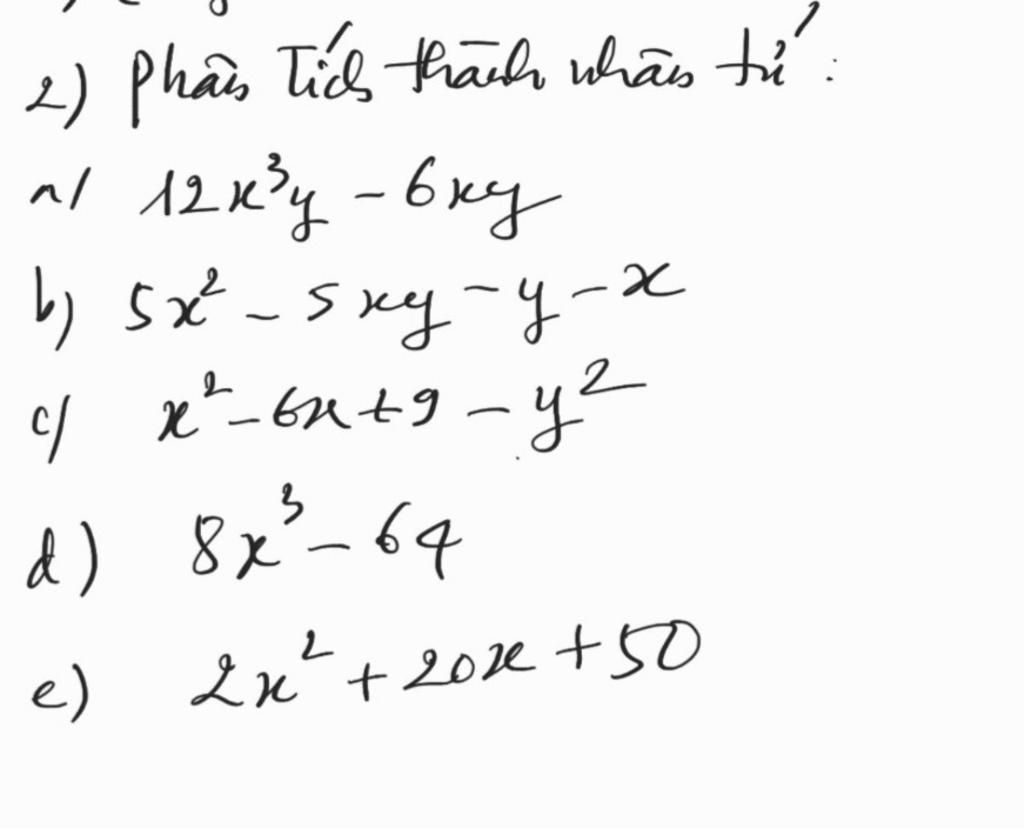 2) Phân Tích thành nhân tử :
a/ 12x³y - 6xy
b) 5x² - 5xy - y - x
c/ x² - 6x + 9 - y²
d) 8x³ - 64
e) 2x² + 20x + 50